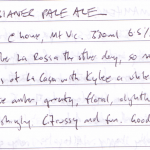 SIANER PALE ALE
@ home, Mt Vic. 330ml 6.5/
La Rossa the other day, so
of La Casa with Kylee a while
amber, grouty, floral, slightly
ishingly. Citrussy and fun. Good